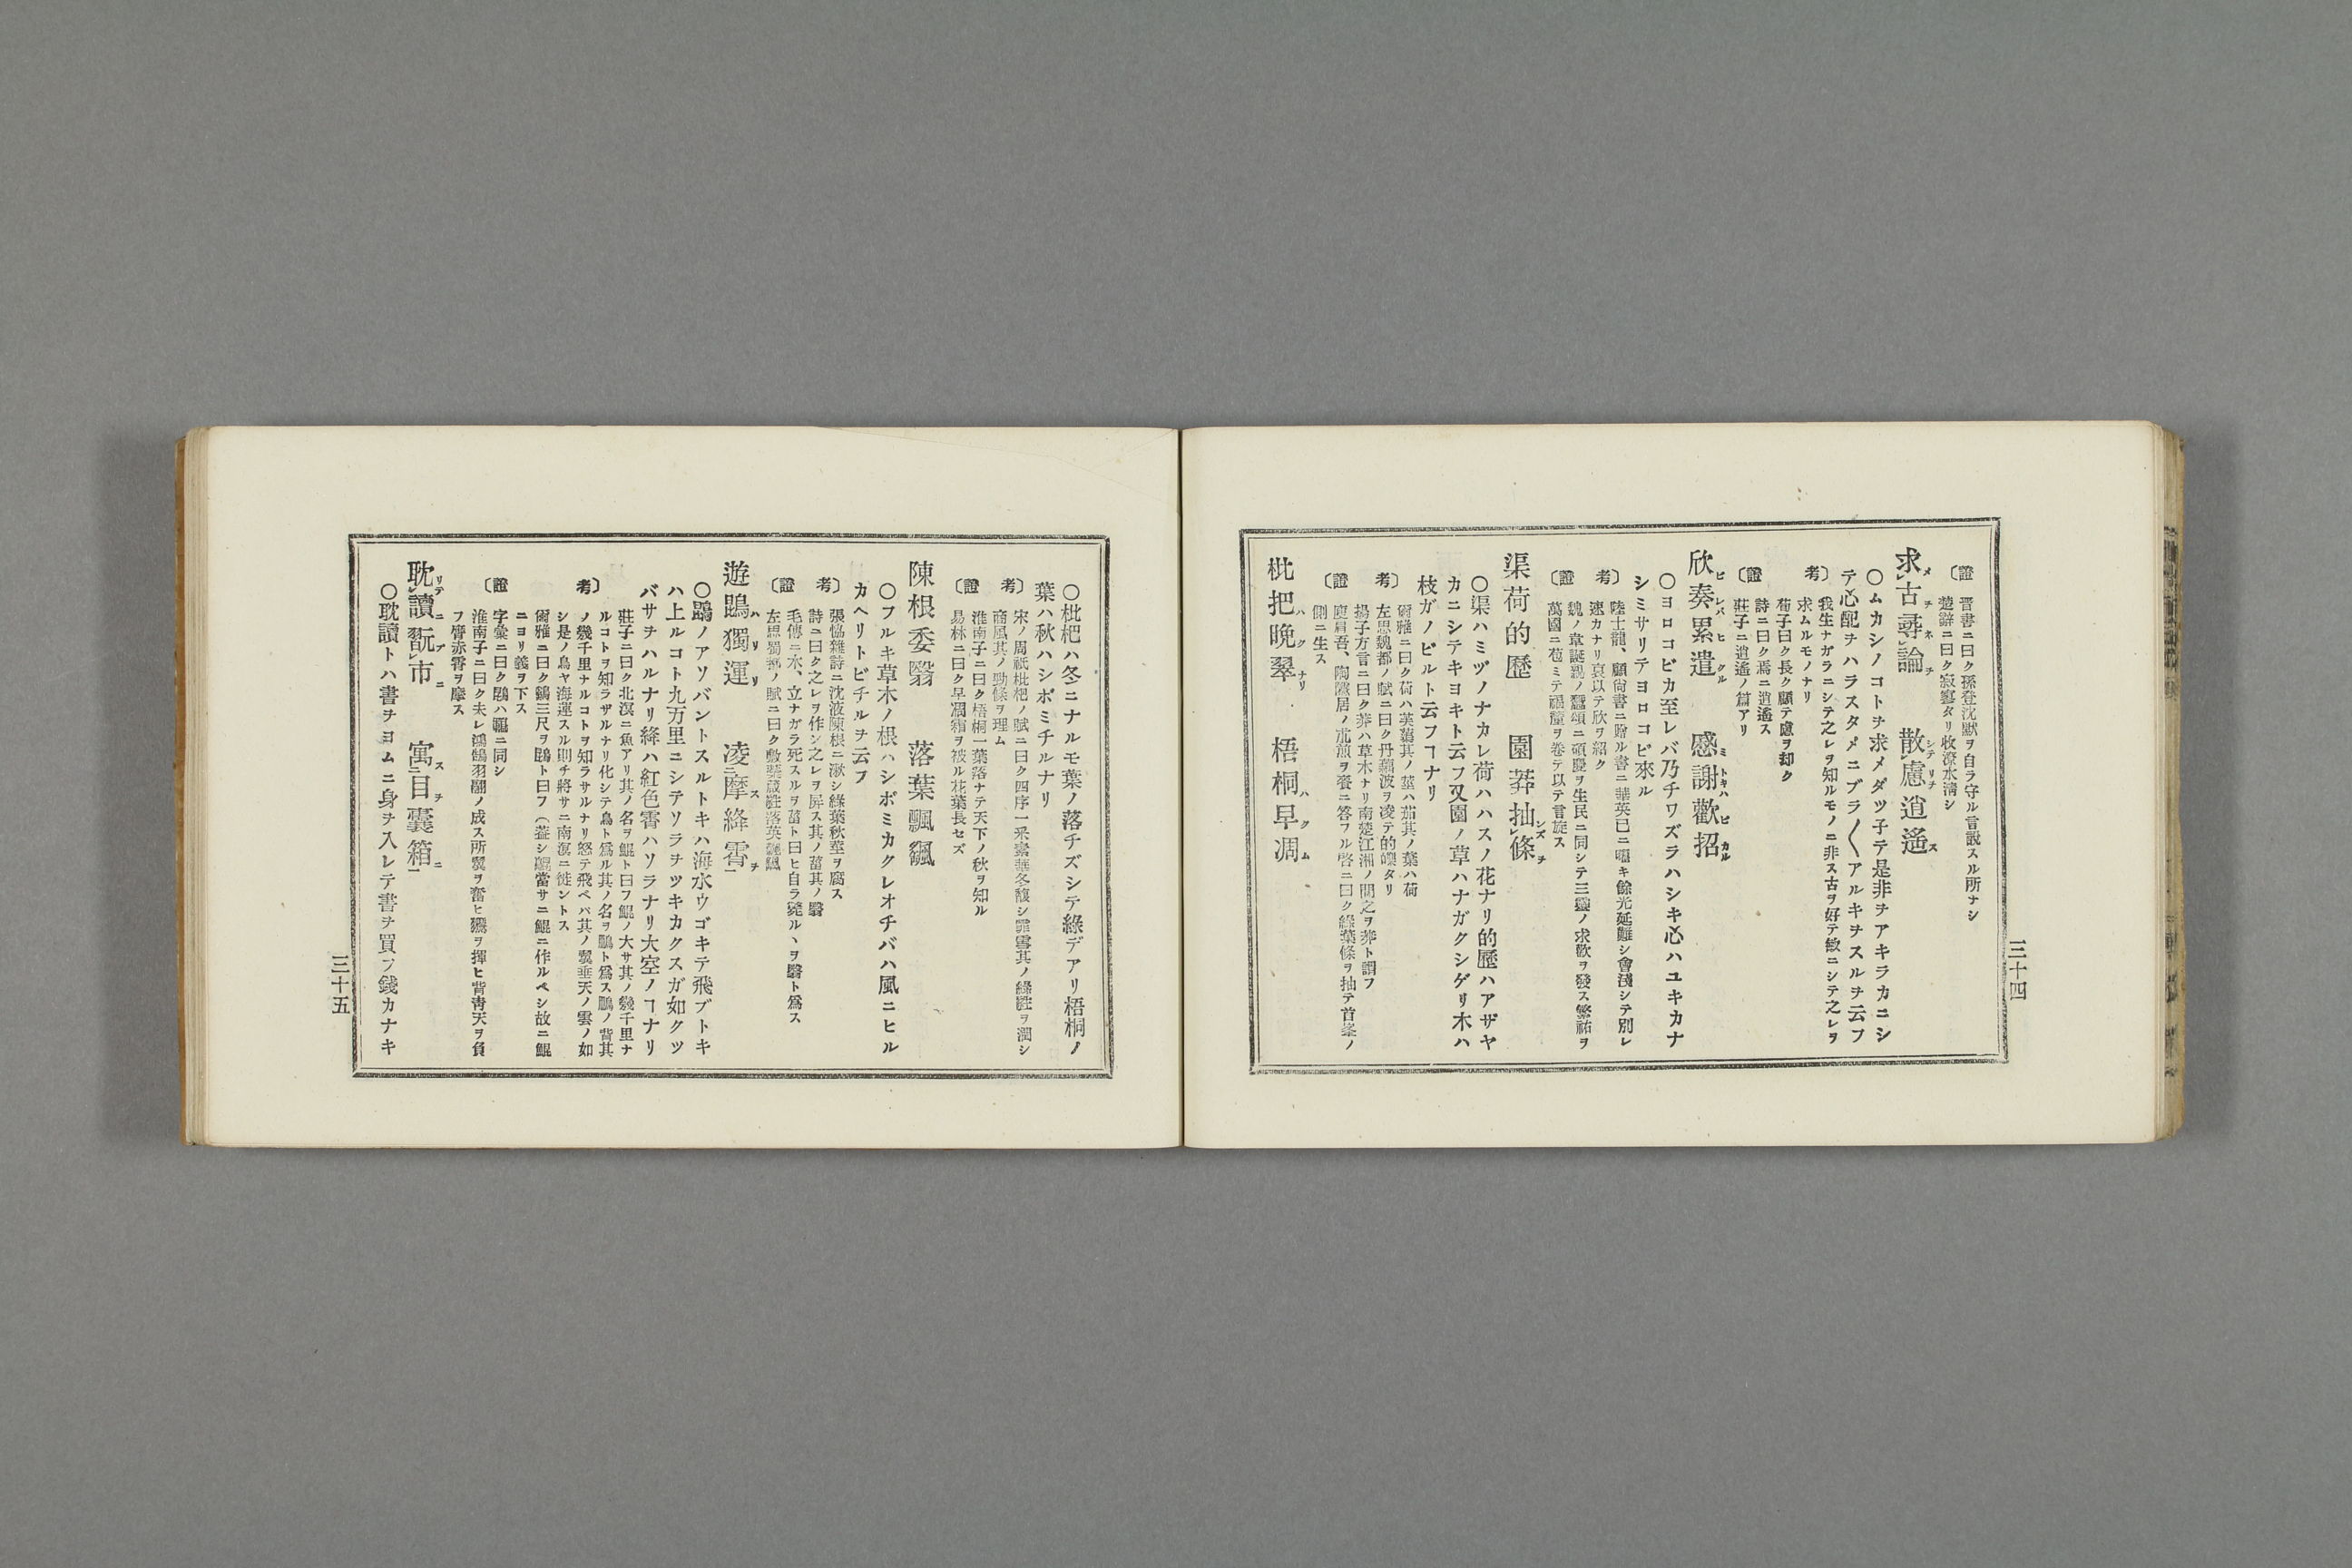 晋書ニ曰ク孫登沈默ヲ自ラ守ル言説スル所ナシ
〔證
楚辭ニ曰ク寂寥タリ收潦水淸シ
求古尋論 散慮逍遙
〇ムカシノコトヲ求メダツ子テ是非ヲアキラカニシ
テ心配ヲハラスタメニブラ〱アルキヲスルヲ云フ
考〕
我生ナガラニシテ之レヲ知ルモノニ非ス古ヲ好テ敏ニシテ之レヲ
求ムルモノナリ
荀子曰ク長ク顧テ慮ヲ却ク
詩ニ曰ク焉ニ逍遙ス
〔證
莊子ニ逍遙ノ篇アリ
欣奏累遣 慼謝歡招
〇ヨロコビカ至レバ乃チワズラハシキ心ハユキカナ
シミサリテヨロコビ來ル
考〕
陸士龍、顧尙書ニ贈ル書ニ華英已ニ囑キ餘光延難シ會淺シテ別レ
速カナリ哀以テ欣ヲ紹ク
〔證
萬國ニ苞ミテ福釐ヲ卷テ以テ言旋ス
渠荷的歷 園莽抽條
〇渠ハミヅノナカレ荷ハハスノ花ナリ的歷ハアザヤ
カニシテキヨキト云フ又園ノ草ハナガクシゲリ木ハ
枝ガノビルト云フヿナリ
考〕
爾雅ニ曰ク荷ハ芙蕖其ノ莖ハ茄其ノ葉ハ荷
左思魏都ノ賦ニ曰ク丹藕波ヲ凌テ的皪タリ
揚子方言ニ曰ク莽ハ草木ナリ南楚江湘ノ間之ヲ莽ト謂フ
〔證
庾肩吾、陶隱居ノ朮煎ヲ賚ニ答フル啓ニ曰ク綠葉條ヲ抽テ首峯ノ
側ニ生ス
枇把晩翠 梧桐早凋
三十四
〇枇杷ハ冬ニナルモ葉ノ落チズシテ綠デアリ梧桐ノ
葉ハ秋ハシボミチルナリ
考〕
宋ノ周祇枇杷ノ賦ニ曰ク四序一采素華冬馥シ霏雪其ノ綠ヲ潤シ
商風其ノ勁條ヲ理ム
淮南子ニ曰ク梧桐一葉落ナテ天下ノ秋ヲ知ル
〔證
易林ニ曰ク早凋霜ヲ被ル花葉長セズ
陳根委翳 落葉飄颻
〇フルキ草木ノ根ハシボミカクレオチバハ風ニヒル
カヘリトビチルヲ云フ
考〕
張恊雜詩ニ沈液陳根ニ潄シ綠葉秋莖ヲ腐ス
詩ニ曰ク之レヲ作シ之レヲ屏ス其ノ菑其ノ翳
〔證
毛傳ニ木、立ナガラ死スルヲ菑ト曰ヒ自ラ斃ルヽヲ翳ト爲ス
左思蜀都ノ賦ニ曰ク敷蘂葳蕤落英飄颻
遊鵾獨運 凌摩絳霄
〇鵾ノアソバントスルトキハ海水ウゴキテ飛ブトキ
ハ上ルコト九万里ニシテソラヲツキカクスガ如クツ
バサヲハルナリ絳ハ紅色霄ハソラナリ大空ノヿナリ
莊子ニ曰ク北溟ニ魚アリ其ノ名ヲ鯤ト曰フ鯤ノ大サ其ノ幾千里ナ
ルコトヲ知ラザルナリ化シテ鳥ト爲ル其ノ名ヲ鵬ト爲ス鵬ノ背其
考〕
ノ幾千里ナルコトヲ知ラサルナリ怒テ飛ベバ其ノ翼垂天ノ雲ノ如
シ是ノ鳥ヤ海運スル則チ將サニ南溟ニ徙ントス
爾雅ニ曰ク鷄三尺ヲ鵾ト曰フ(蓋シ鵾當サニ鯤ニ作ルベシ故ニ鯤
ニヨリ義ヲ下ス
字彙ニ曰ク鵾ハ鶤ニ同シ
〔證
淮南子ニ曰ク夫レ鴻鵠羽翮ノ成ス所翼ヲ奮ヒ翮ヲ揮ヒ背靑天ヲ負
フ膺赤霄ヲ摩ス
耽讀翫市 寓目囊箱
〇耽讀トハ書ヲヨムニ身ヲ入レテ書ヲ買フ錢カナキ
三十五